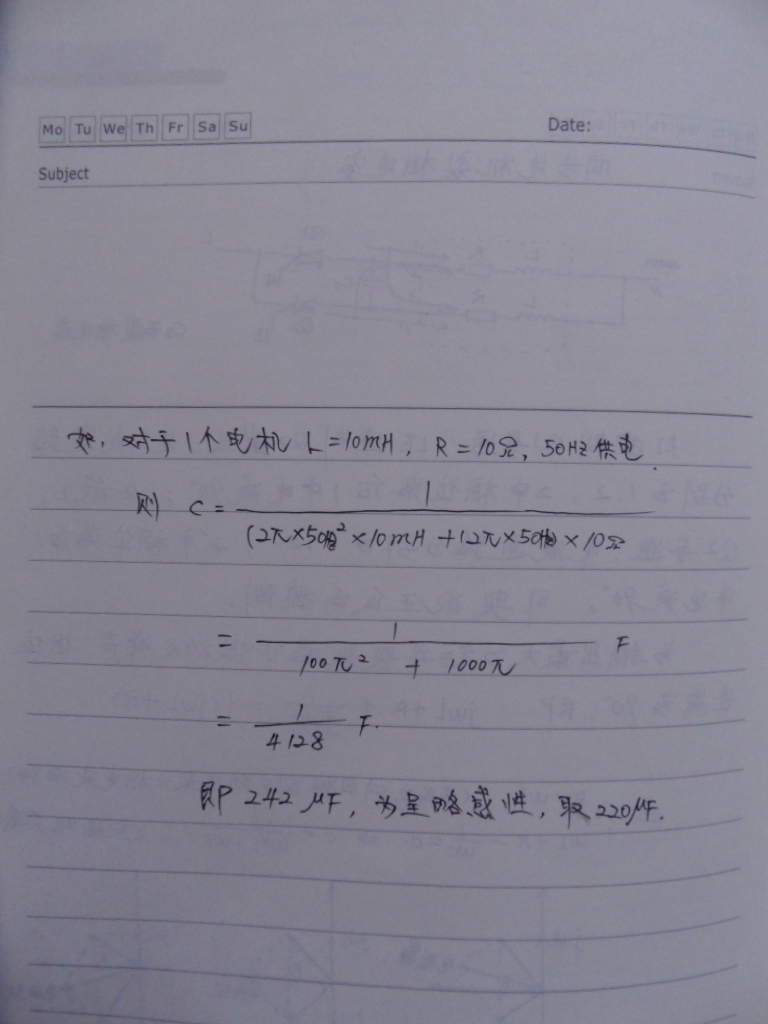 Mo Tu We Th Fr Sa Su Date:
Subject
如，对于1个电机 L=10mH，R=10Ω，50HZ供电.
则 C = 1 / (2π×50Hz)² ×10mH +(2π×50Hz)×10Ω
= 1 / 100π² + 1000π F
= 1 / 4128 F.
即 242 μF，为呈略感性，取220μF.